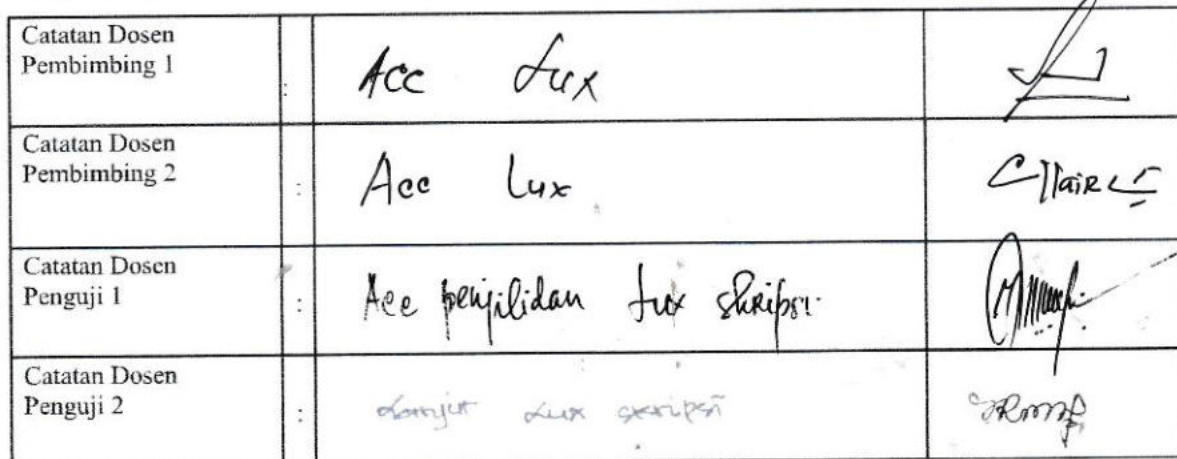 Catatan Dosen
Pembimbing 1 : Acc Lux
Catatan Dosen
Pembimbing 2 : Acc Lux
Catatan Dosen
Penguji 1 : Acc penjilidan Lux skripsi
Catatan Dosen
Penguji 2 : Lanjut Lux skripsi